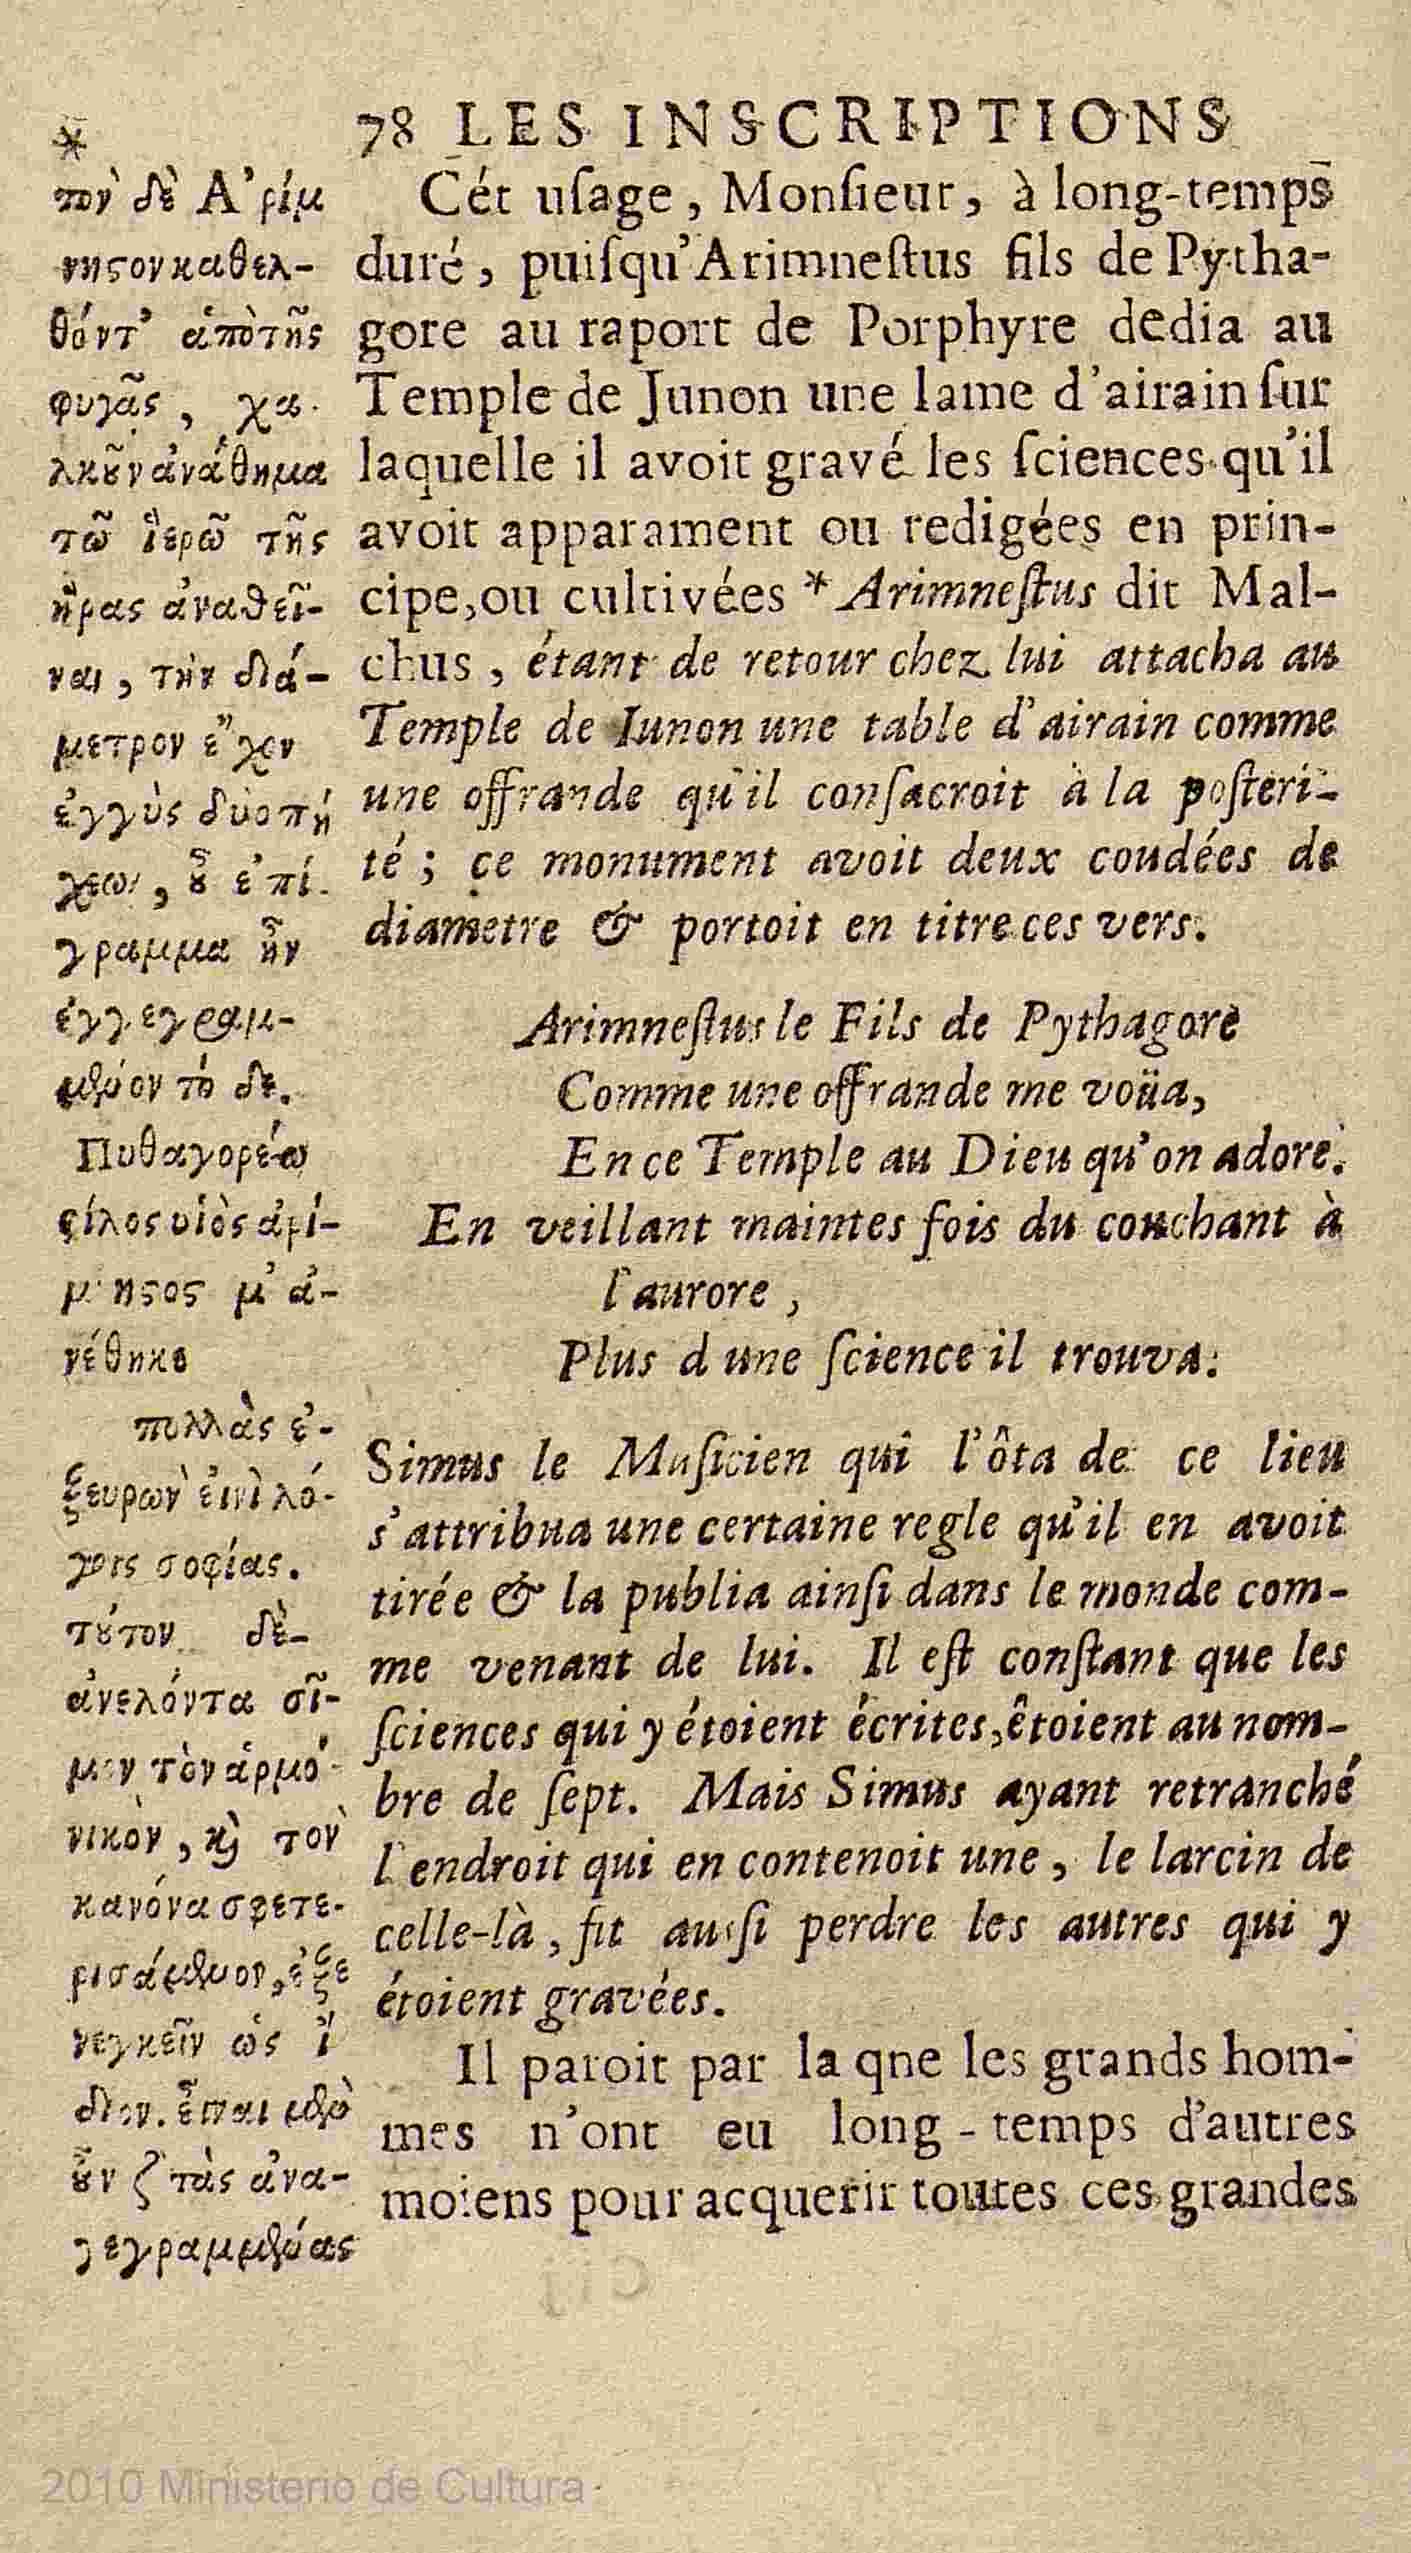 78 LES INSCRIPTIONS
Cét uſage, Monſieur, à long-temps
duré, puiſqu'Arimneſtus fils de Pytha-
gore au raport de Porphyre dedia au
Temple de Junon une lame d'airain ſur
laquelle il avoit gravé les ſciences qu'il
avoit apparament ou redigées en prin-
cipe, ou cultivées * Arimneſtus dit Mal-
chus, étant de retour chez lui attacha au
Temple de Iunon une table d'airain comme
une offrande qu'il conſacroit à la poſteri-
té; ce monument avoit deux coudées de
diametre & portoit en titre ces vers.
Arimneſtus le Fils de Pythagore
Comme une offrande me voüa,
En ce Temple au Dieu qu'on adore.
En veillant maintes fois du couchant à
l'aurore,
Plus d'une ſcience il trouva.
Simus le Muſicien qui l'ôta de ce lieu
s'attribua une certaine regle qu'il en avoit
tirée & la publia ainſi dans le monde com-
me venant de lui. Il eſt conſtant que les
ſciences qui y étoient écrites, êtoient au nom-
bre de ſept. Mais Simus ayant retranché
l'endroit qui en contenoit une, le larcin de
celle-là, fit auſſi perdre les autres qui y
étoient gravées.
Il paroit par la qne les grands hom-
mes n'ont eu long-temps d'autres
moiens pour acquerir toutes ces grandes
*
τὸν δὲ Α'ρίμ
νηϛον καθελ-
θόντ' ἀπὸ τῆς
φυγᾶς, χα-
λκοῦν ἀνάθημα
τῶ ἱερῶ τῆς
ἥρας ἀναθεῖ-
ναι, τὴν διά-
μετρον ἔχον
ἐγγὺς δύο πή
χεων, οὗ ἐπί-
γραμμα ἦν
ἐγγεγραμ-
μένον τό δε.
Πυθαγορέω
φίλος υἱὸς ἀρί-
μνηϛος μ' ἀ-
νέθηκε
πολλὰς ἐ-
ξευρὼν ἐνὶ λό-
γοις σοφίας.
τοῦτον δὲ-
ἀνελόντα σῖ-
μον τὸν ἁρμο-
νικὸν, καὶ τὸν
κανόνα σφετε-
ρισάμενον, ἐξε
νεγκεῖν ὡς ἴ
διον. εἶναι μὲν
οὖν ζ τὰς ἀνα-
γεγραμμένας
2010 Ministerio de Cultura